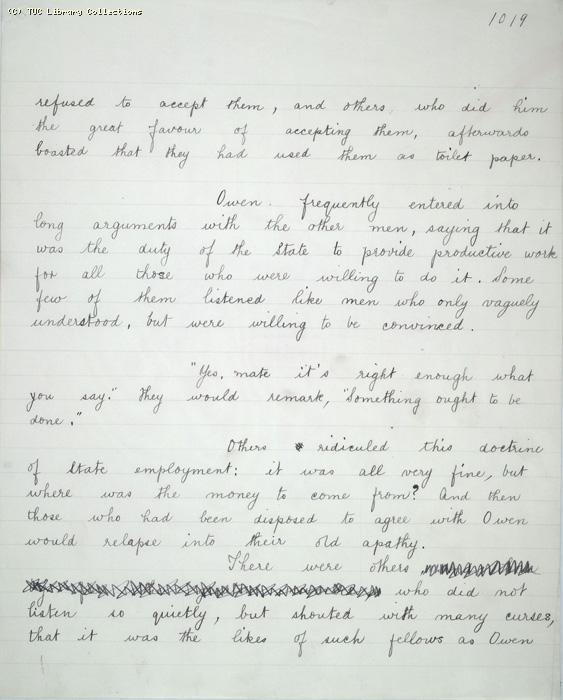 (C) TUC Library Collections
1019
refused to accept them, and others, who did him
the great favour of accepting them, afterwards
boasted that they had used them as toilet paper.
Owen. frequently entered into
long arguments with the other men, saying that it
was the duty of the State to provide productive work
for all those who were willing to do it. Some
few of them listened like men who only vaguely
understood, but were willing to be convinced.
"Yes, mate it's right enough what
you say." they would remark, "Something ought to be
done."
Others ridiculed this doctrine
of State employment: it was all very fine, but
where was the money to come from? And then
those who had been disposed to agree with Owen
would relapse into their old apathy.
There were others
who did not
listen so quietly, but shouted with many curses,
that it was the likes of such fellows as Owen